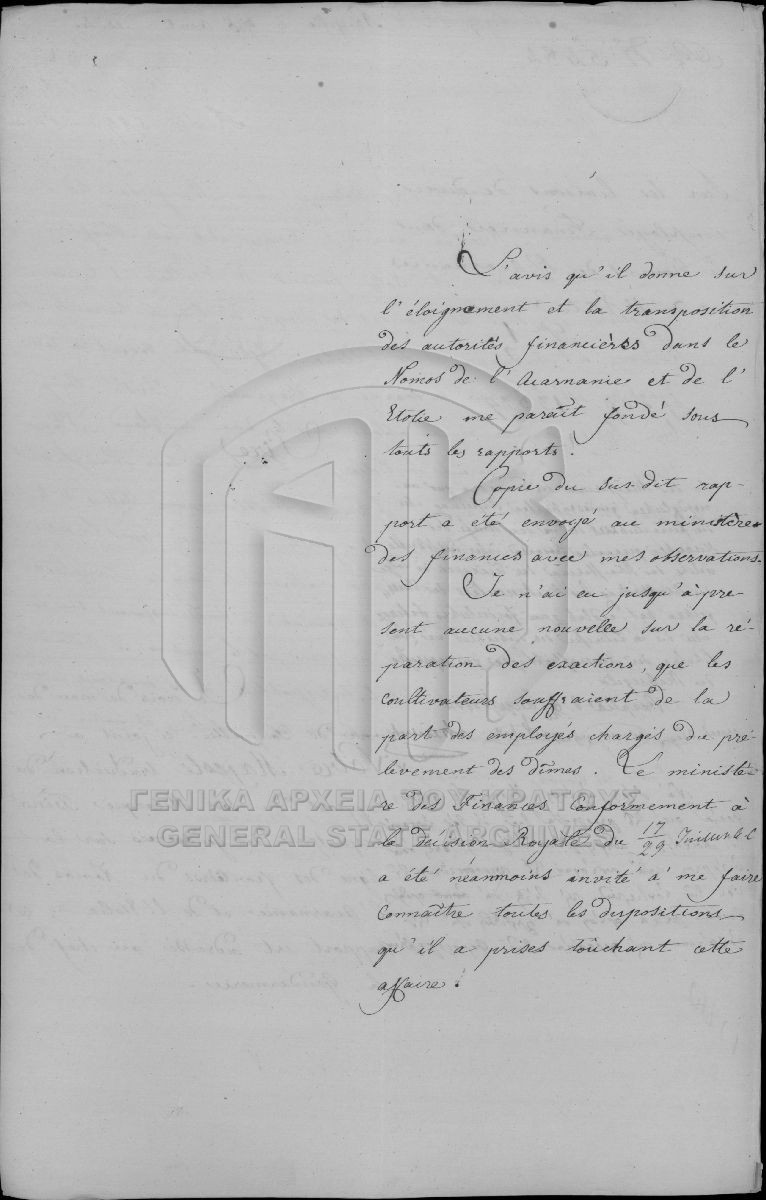 L'avis qu'il donne sur
l'éloignement et la transposition
des autorités financières dans le
Nomos de l'Acarnanie et de l'
Etolie me parait fondé sous
touts les rapports.
Copie du sus-dit rap-
port a été envoyé au ministère
des finances avec mes observations.
Je n'ai eu jusqu'à pre-
sent aucune nouvelle sur la ré-
paration des exactions, que les
coultivateurs souffraient de la
part des employés chargés du pré-
lèvement des dîmes. Le ministè-
re des Finances conformement à
la décision Royale du 17/29 Juillet
a été néanmoins invité à me faire
connaître toutes les dispositions
qu'il a prises touchant cette
affaire.
ΓΕΝΙΚΑ ΑΡΧΕΙΑ ΤΟΥ ΚΡΑΤΟΥΣ
GENERAL STATE ARCHIVES